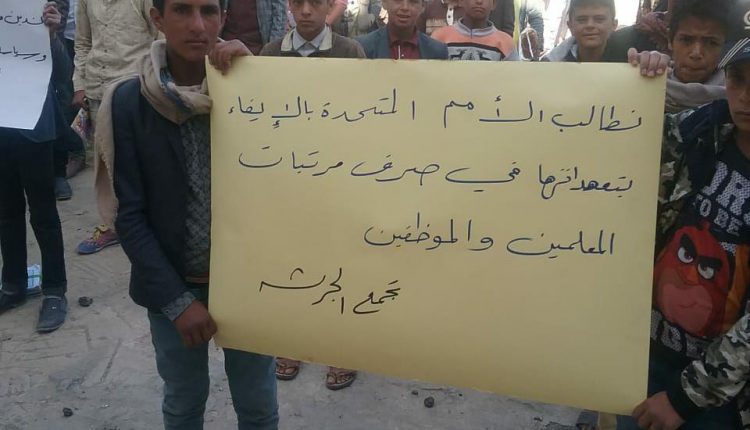 نطالب الأمم المتحدة بالإيفاء
بتعهداتها في صرف مرتبات
المعلمين والموظفين
تجمع الجرشه
PROUD
TO BE